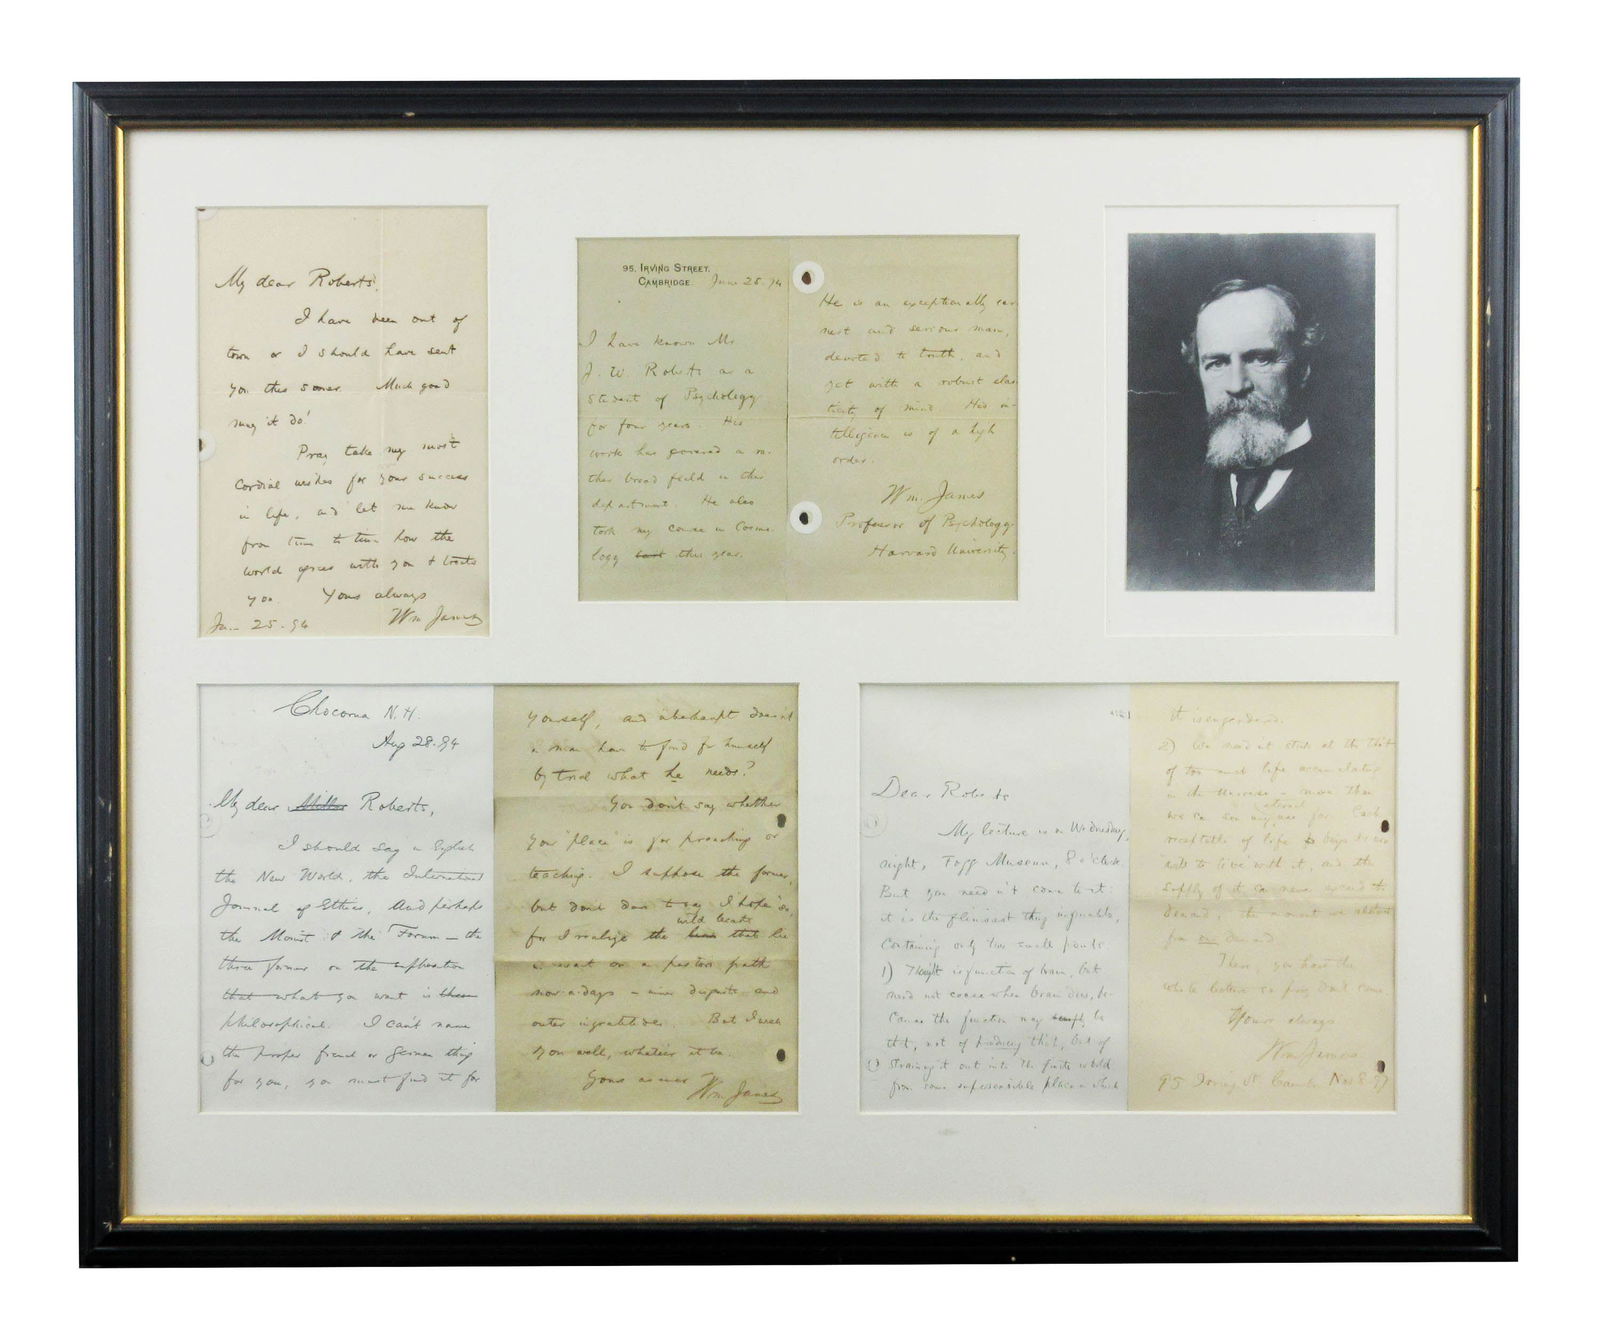 My dear Roberts,
I have been out of
town or I should have sent
you this sooner. Much good
may it do!
Pray take my most
cordial wishes for your success
in life, and let me know
from time to time how the
world goes with you & treats
you. Yours always
Jun 25. 94 Wm James
95, IRVING STREET,
CAMBRIDGE. June 25. 94
I have known Mr
J. W. Roberts as a
student of Psychology
for four years. His
work has covered a ra-
ther broad field in this
department. He also
took my course in Cosmo-
logy last this year.
He is an exceptionally ear-
nest and serious man,
devoted to truth, and
yet with a robust elas-
ticity of mind. His in-
telligence is of a high
order.
Wm. James
Professor of Psychology
Harvard University.
Chocorua N.H.
Aug 28. 94
My dear Miller Roberts,
I should say in English
the New World, the International
Journal of Ethics, and perhaps
the Monist & the Forum — the
three former on the supposition
that what you want is these
philosophical. I can't name
the proper french or german thing
for you, you must find it for
yourself, and überhaupt doesn't
a man have to find for himself
by trial what he needs?
You don't say whether
your "place" is for preaching or
teaching. I suppose the former,
but dont dare to say "I hope" so,
wild beasts
for I realize the lions that lie
in wait on a pastors path
now-a-days — inner disquiets and
outer ingratitudes. But I wish
you well, whatever it be.
Yours as ever Wm James
Dear Roberts
My lecture is on Wednesday
night, Fogg Museum, 8 o'clock.
But you need n't come to it:
it is the flimsiest thing inguable,
containing only two small points
1) Thought is function of brain, but
need not cease when brain dies, be-
cause the function may simply be
that, not of producing that, but of
straining it out into the finite world
from some supersensible place in which
it is engendered.
2) We need n't stick at the tht
of too much life accumulating
in the Universe — more than
eternal
we can see any use for. Each
receptacle of life
asks to live with it, and the
supply of it can never exceed the
demand, the moment we abstract
from our demand
There, you have the
whole lecture so pray don't come.
Yours always
Wm James
95 Irving St. Cambr. Nov 8. 97